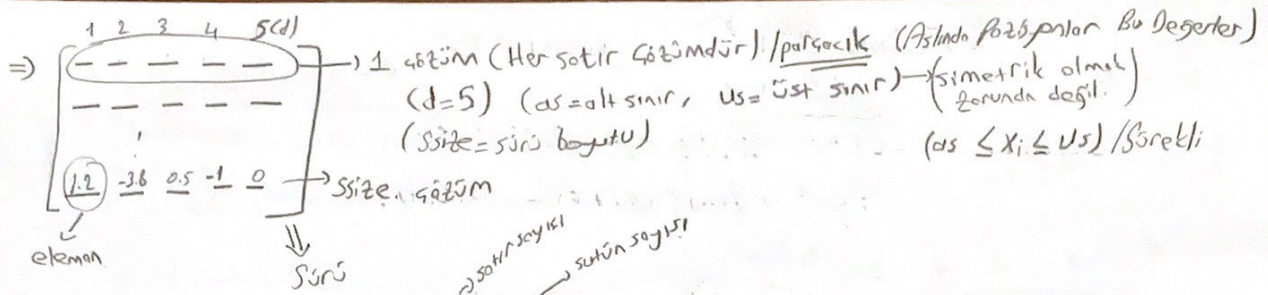 1 2 3 4 5(d)
⇒ [ — — — — — → 1. çözüm (Her satır çözümdür) / parçacık (Aslında Pozisyonlar Bu Değerler)
— — — — — (d=5) (as=alt sınır, Us=üst sınır) → (simetrik olmak zorunda değil.)
(Ssize=sürü boyutu) (as ≤ Xi ≤ Us) / Sürekli
1.2 -3.8 0.5 -1 0 → Ssize. çözüm
eleman
Sürü
satır sayısı
sutün sayısı